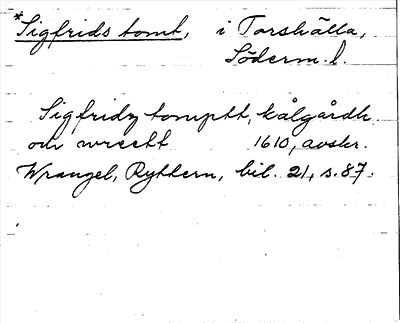 *Sigfrids tomt, i Torshälla,
Söderm. l.
Sigfridz tomptt, kålgårdh
och wrecht 1610, avskr.
Wrangel, Ryttern, bil. 21, s. 87.